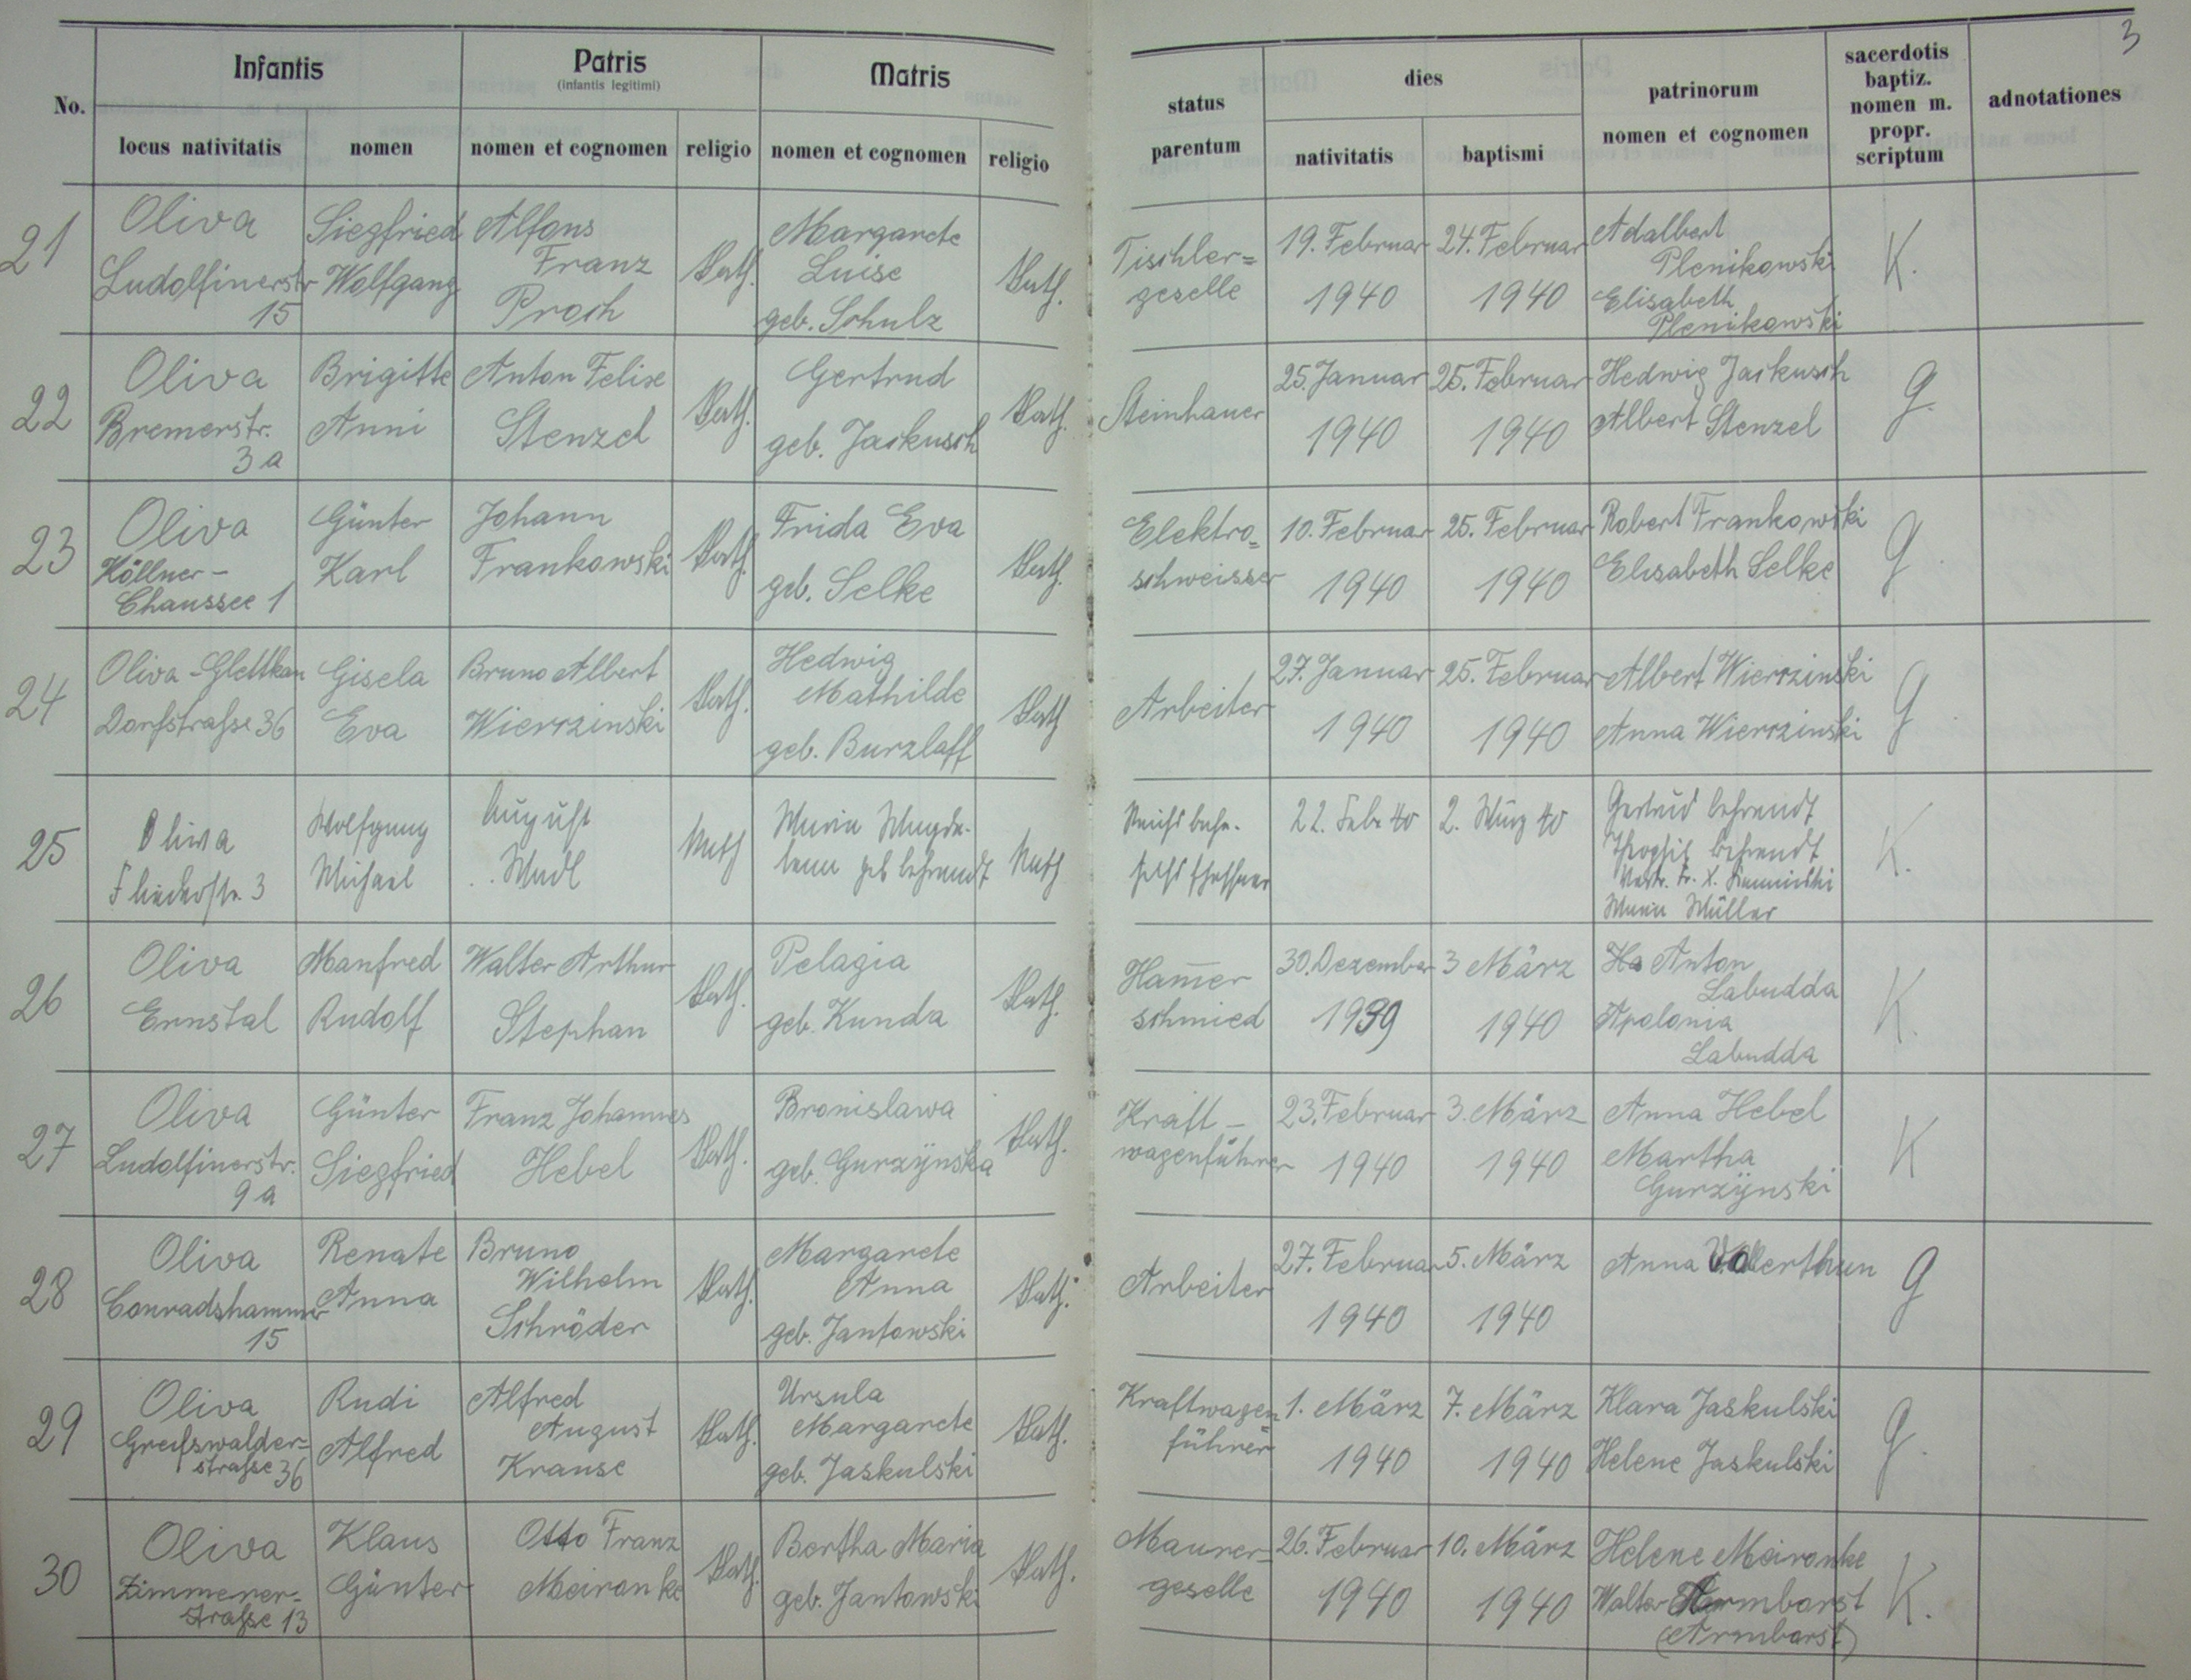 3
No.
Infantis
Patris
(infantis legitimi)
Matris
status
parentum
dies
patrinorum
nomen et cognomen
sacerdotis
baptiz.
nomen m.
propr.
scriptum
adnotationes
locus nativitatis
nomen
nomen et cognomen
religio
nomen et cognomen
religio
nativitatis
baptismi
21
Oliva
Ludolfinerstr
15
Siegfried
Wolfgang
Alfons
Franz
Proch
Kath.
Margarete
Luise
geb. Schulz
Kath.
Tischler=
geselle
19. Februar
1940
24. Februar
1940
Adalbert
Plenikowski
Elisabeth
Plenikowski
K.
22
Oliva
Bremerstr.
3a
Brigitte
Anni
Anton Felixe
Stenzel
Kath.
Gertrud
geb. Jackusch
Kath.
Steinhauer
25. Januar
1940
25. Februar
1940
Hedwig Jackusch
Albert Stenzel
G.
23
Oliva
Köllner-
Chaussee 1
Günter
Karl
Johann
Frankowski
Kath.
Frida Eva
geb. Selke
Kath.
Elektro=
schweisser
10. Februar
1940
25. Februar
1940
Robert Frankowski
Elisabeth Selke
G
24
Oliva-Glettkau
Dorfstraße 36
Gisela
Eva
Bruno Albert
Wierzinski
Kath.
Hedwig
Mathilde
geb. Burzlaff
Kath
Arbeiter
27. Januar
1940
25. Februar
1940
Albert Wierzinski
Anna Wierzinski
G
25
Oliva
3
Wolfgang
Michael
August
Kath
Maria Magda-
lena geb Behrendt
Kath
Reichsbahn-
22. Febr 40
2. März 40
Gertrud Behrendt
Theophil Behrendt
Maria Müller
K.
26
Oliva
Ernstal
Manfred
Rudolf
Walter Arthur
Stephan
Kath.
Pelagia
geb. Kunda
Kath.
Ham̅er
schmied
30. Dezember
1939
3 März
1940
Anton
Labudda
Apolonia
Labudda
K.
27
Oliva
Ludolfinerstr.
9a
Günter
Siegfried
Franz Johannes
Hebel
Kath.
Bronislawa
geb. Gurzÿnska
Kath.
Kraft-
wagenführer
23. Februar
1940
3. März
1940
Anna Hebel
Martha
Gurzÿnski
K
28
Oliva
Conradshammer
15
Renate
Anna
Bruno
Wilhelm
Schröder
Kath.
Margarete
Anna
geb. Jantowski
Kath.
Arbeiter
27. Februar
1940
5. März
1940
Anna Vollerthun
G
29
Oliva
Greifswalder-
straße 36
Rudi
Alfred
Alfred
August
Krause
Kath.
Ursula
Margarete
geb. Jaskulski
Kath.
Kraftwagen
führer
1. März
1940
7. März
1940
Klara Jaskulski
Helene Jaskulski
G.
30
Oliva
Zimmerer-
straße 13
Klaus
Günter
Otto Franz
Meironke
Kath.
Bertha Maria
geb. Jantowski
Kath.
Maurer-
geselle
26. Februar
1940
10. März
1940
Helene Meironke
Walter Armborst
(Armborst)
K.